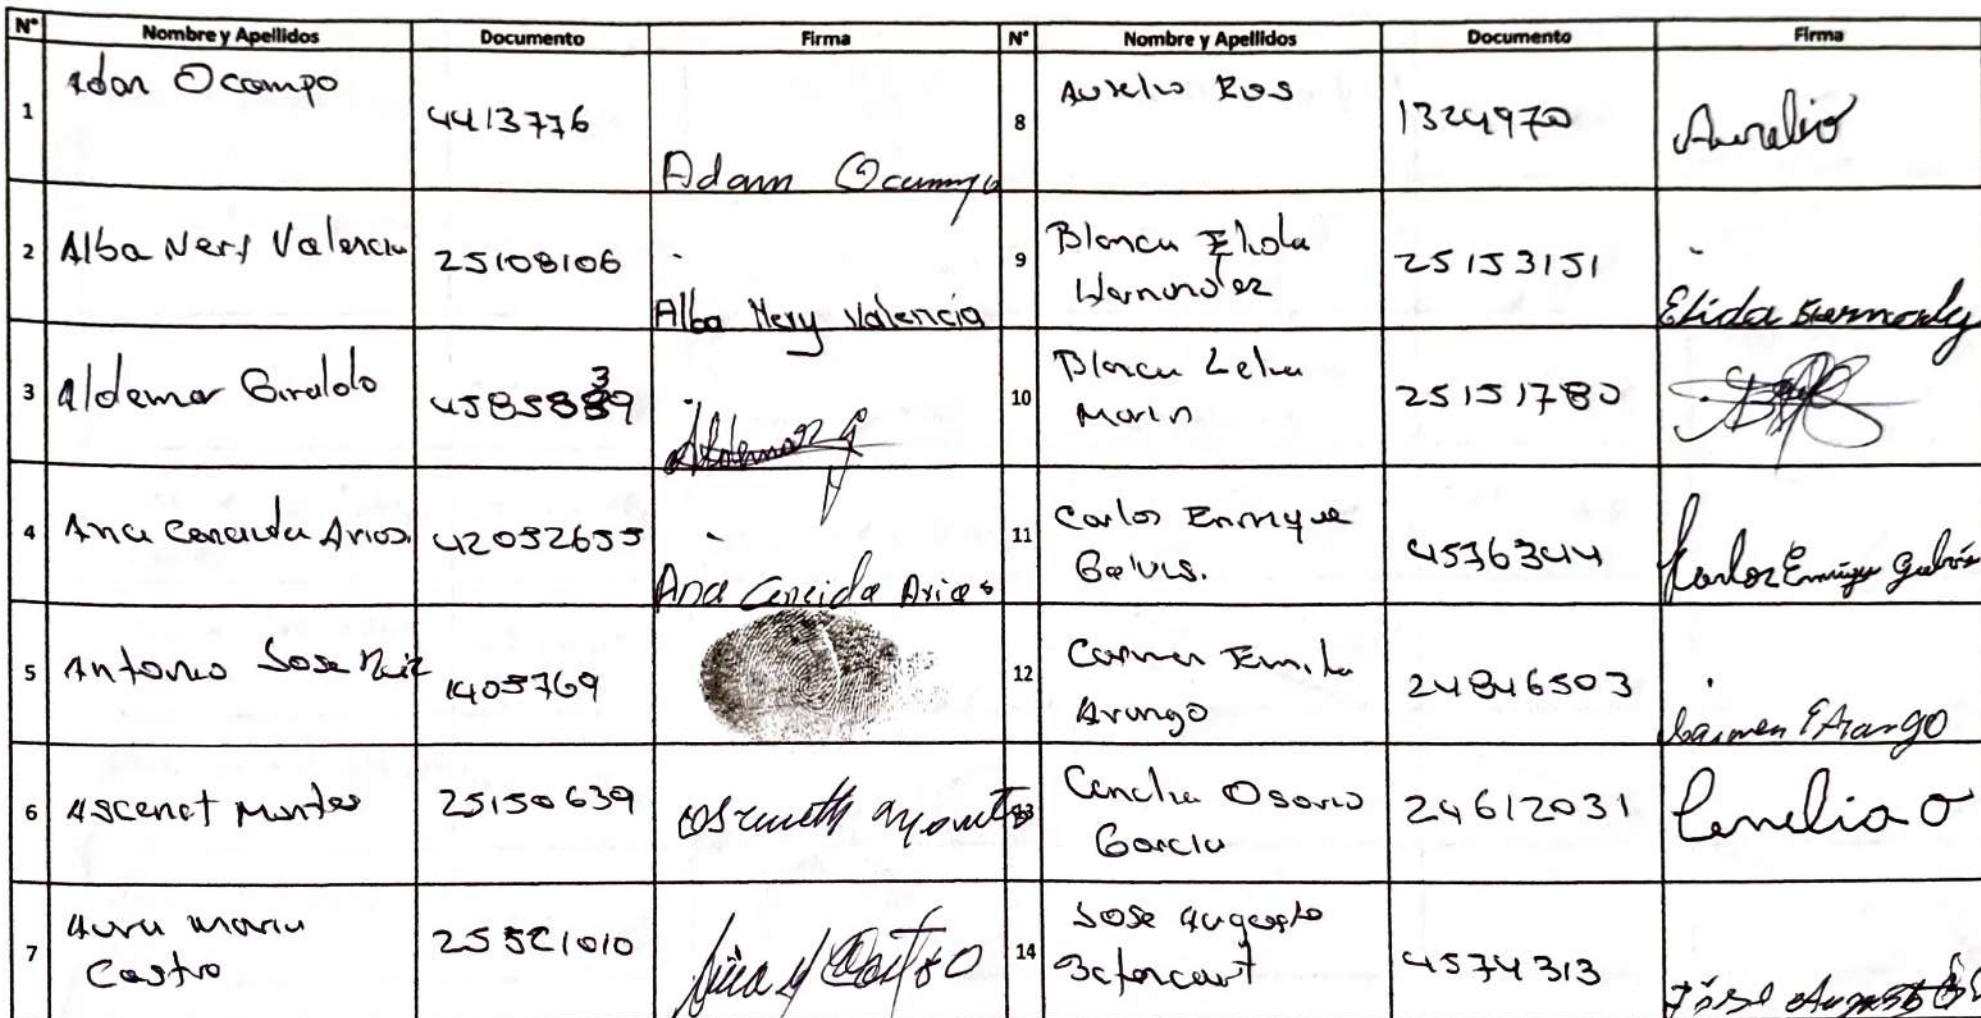 N° Nombre y Apellidos Documento Firma N° Nombre y Apellidos Documento Firma
1 Adan Ocampo 4413776 Adam Ocampo 8 Aurelio Rios 1324970 Aurelio
2 Alba Nery Valencia 25108106 Alba Nery Valencia 9 Blanca Elida Hernandez 25153151 Elida
3 Aldemar Giraldo 4585339 Aldemar G 10 Blanca Lelia Marin 25151780
4 Ana Ceneida Arias 42052655 Ana Ceneida Arias 11 Carlos Enrrique Galvis. 4536344 Carlos Enrique Galvis
5 Antonio Jose Ruiz 1405769 12 Carmen Emilia Arango 24846503 Carmen E Arango
6 Ascenet Montes 25150639 13 Cenelia Osorio Garcia 24612031 Cenelia O
7 Aura Maria Castro 25521010 Castro 14 Jose Augusto Betancurt 4574313 José Augusto